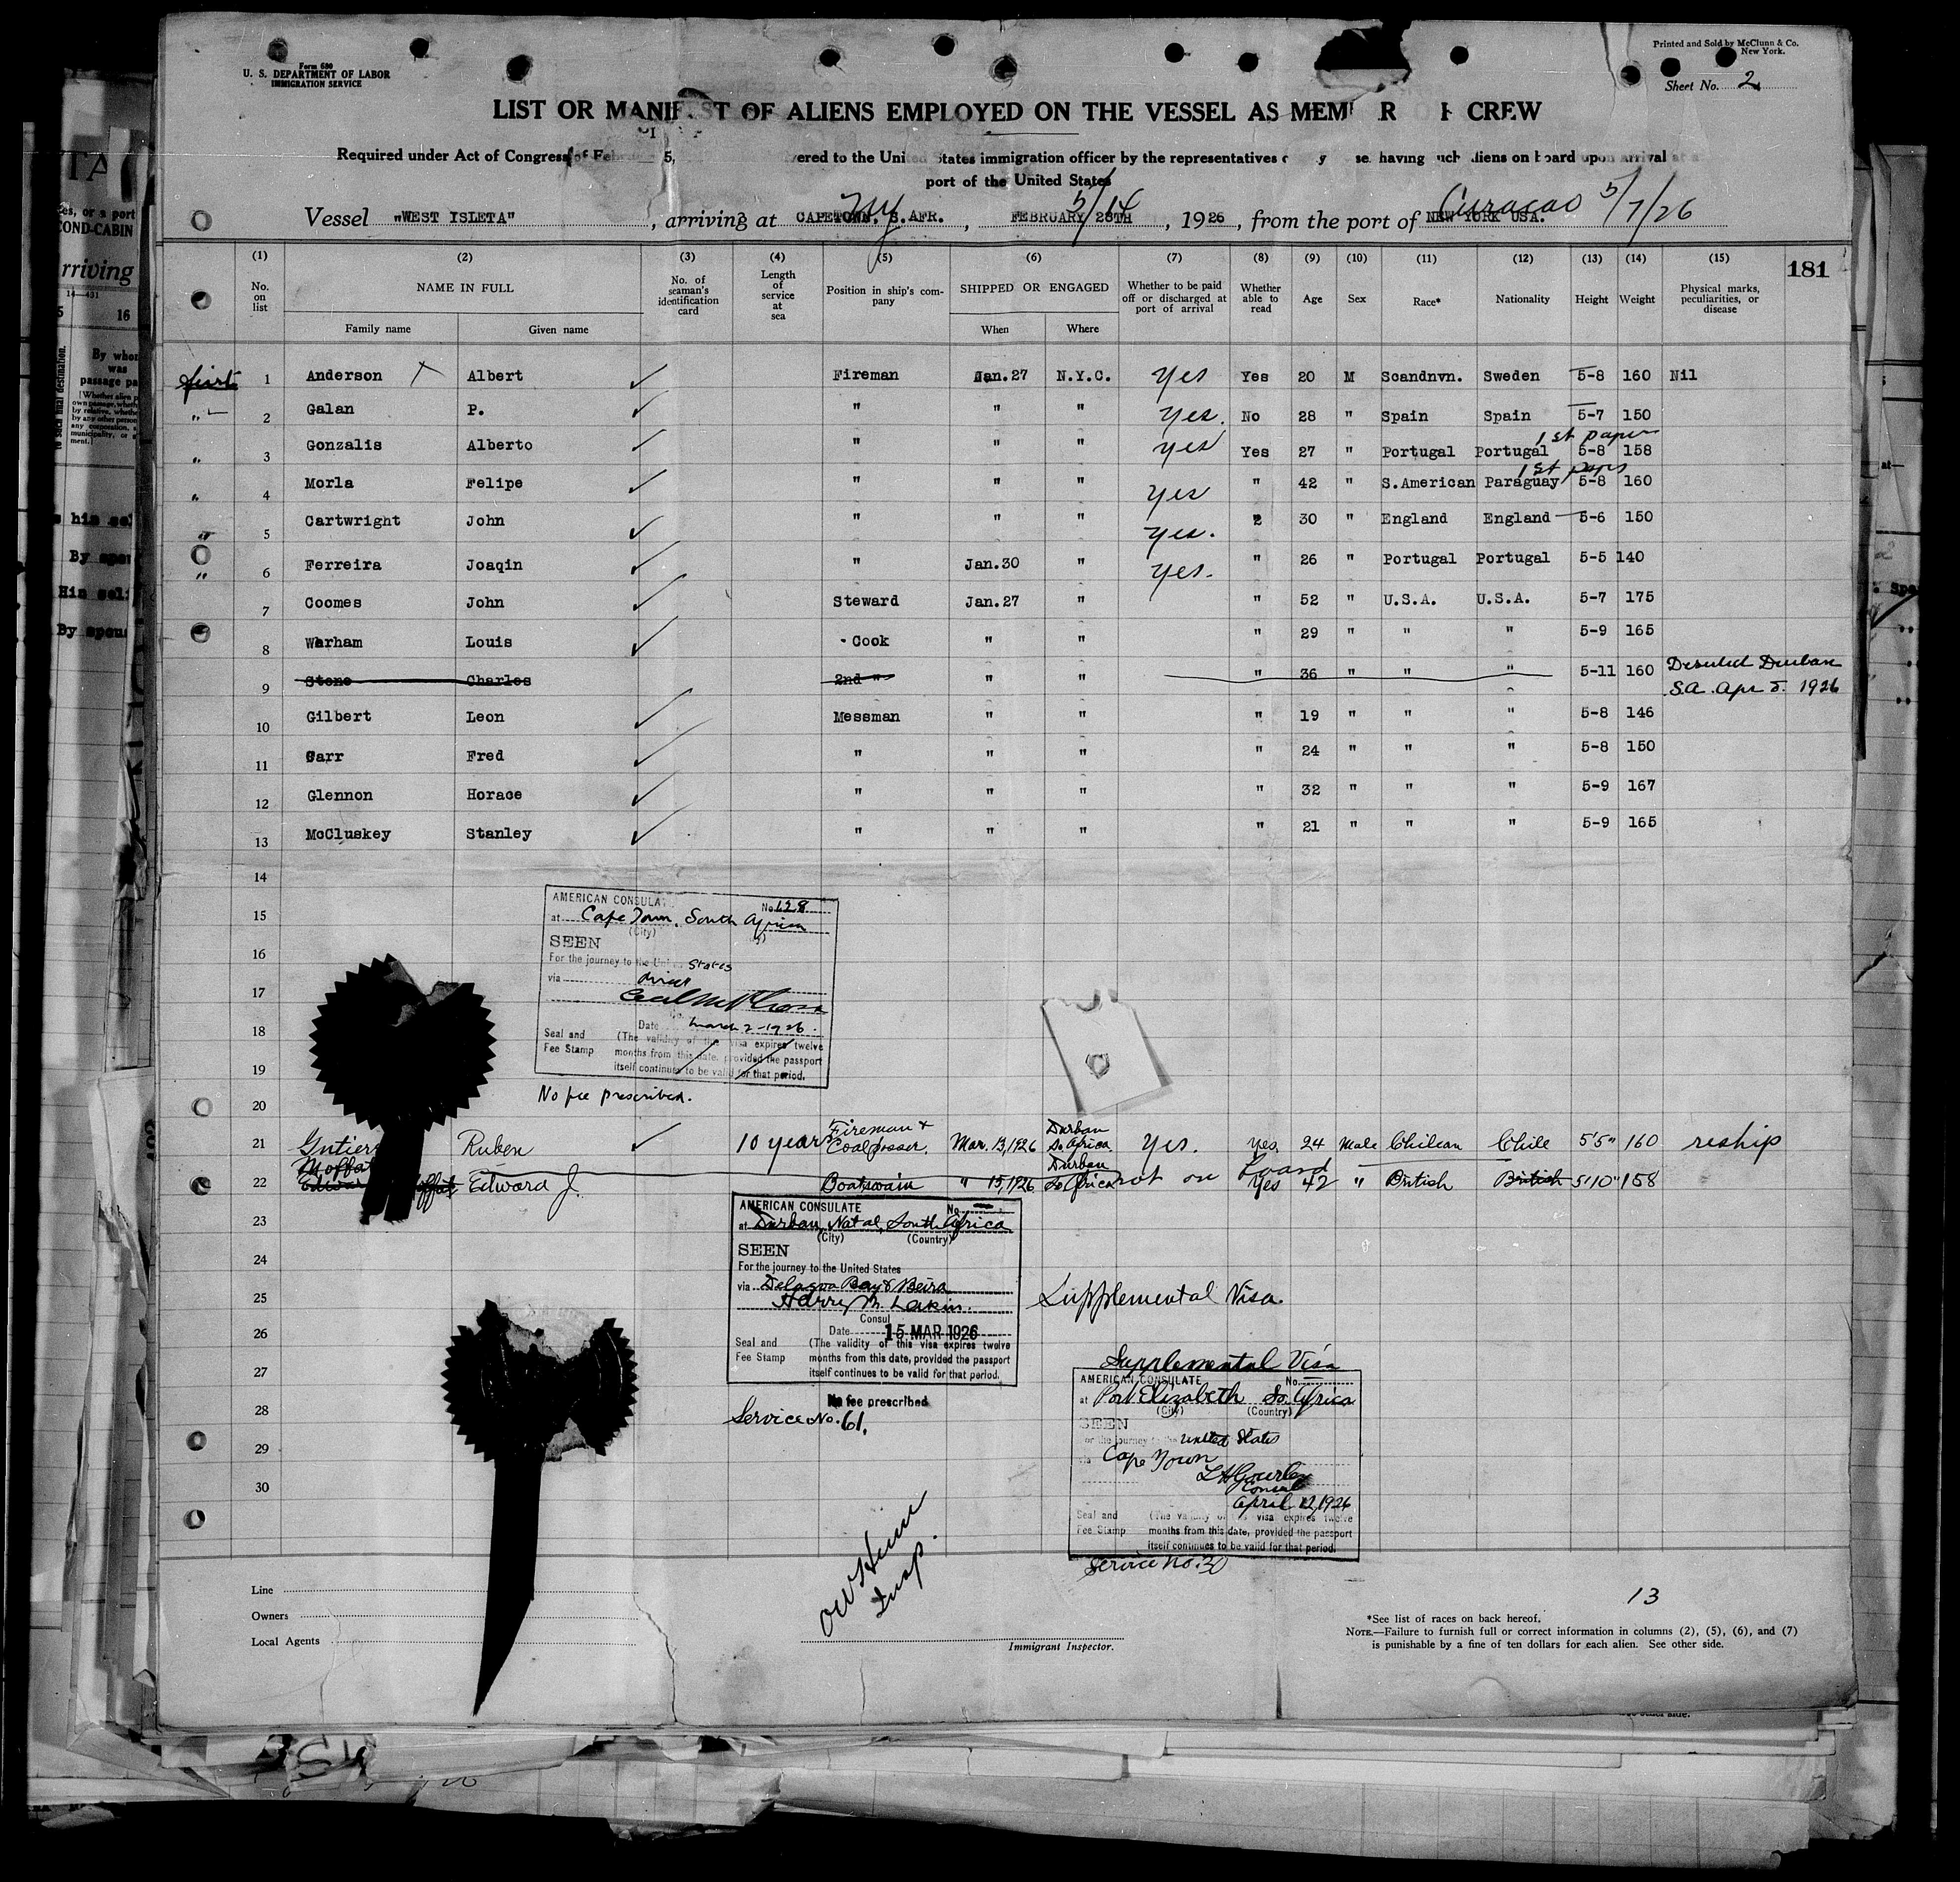 Form 680
U. S. DEPARTMENT OF LABOR
IMMIGRATION SERVICE
Printed and Sold by McClunn & Co.
New York.
Sheet No. 2
LIST OR MANIF ST OF ALIENS EMPLOYED ON THE VESSEL AS MEM R CREW
Required under Act of Congress of Feb 5, vered to the United States immigration officer by the representatives having such aliens on board upon arrival at a
port of the United States
Vessel "WEST ISLETA", arriving at CAPETOWN. S.AFR. NY, FEBRUARY 28TH 5/14, 1926, from the port of NEW YORK USA. Curacao 5/7/26
(1) (2) (3) (4) (5) (6) (7) (8) (9) (10) (11) (12) (13) (14) (15) 181
No. on list NAME IN FULL Family name Given name No. of seaman's identification card Length of service at sea Position in ship's company SHIPPED OR ENGAGED When Where Whether to be paid off or discharged at port of arrival Whether able to read Age Sex Race* Nationality Height Weight Physical marks, peculiarities, or disease
first 1 Anderson X Albert ✓ Fireman Jan.27 N.Y.C. Yes Yes 20 M Scandnvn. Sweden 5-8 160 Nil
" 2 Galan P. ✓ " " " Yes. No 28 " Spain Spain 5-7 150
" 3 Gonzalis Alberto ✓ " " " Yes Yes 27 " Portugal Portugal 1st paper 5-8 158
" 4 Morla Felipe ✓ " " " Yes " 42 " S.American Paraguay 1st paper 5-8 160
" 5 Cartwright John ✓ " " " Yes. " 30 " England England 5-6 150
" 6 Ferreira Joaqin ✓ " Jan.30 " Yes. " 26 " Portugal Portugal 5-5 140
7 Coomes John ✓ Steward Jan.27 " " 52 " U.S.A. U.S.A. 5-7 175
8 Warham Louis ✓ Cook " " " 29 " " " 5-9 165
9 Stone Charles 2nd " " " " 36 " " " 5-11 160 Deserted Durban
S.A. Apr 5. 1926
10 Gilbert Leon ✓ Messman " " " 19 " " " 5-8 146
11 Carr Fred ✓ " " " " 24 " " " 5-8 150
12 Glennon Horace ✓ " " " " 32 " " " 5-9 167
13 McCluskey Stanley ✓ " " " " 21 " " " 5-9 165
14
15
16
17
18
19
20
AMERICAN CONSULAT No. 128
at Cape Town, South Africa
(City)
SEEN
For the journey to the United States
via
Date March 2-1926.
Seal and Fee Stamp (The validity of the visa expires twelve
months from this date, provided the passport
itself continues to be valid for that period.
No fee prescribed.
21 Gutier Ruben ✓ 10 years Fireman + Coal passer. Mar. 13, 1926 Durban So. Africa. Yes. Yes. 24 Male Chilean Chile 5'5" 160 reship
22 Moffat Edward J. Boatswain " 15, 1926 Durban So. Africa not on board Yes 42 " British British 5'10" 158
23
24
25
26
27
28
29
30
AMERICAN CONSULATE No.
at Durban, Natal, South Africa
(City) (Country)
SEEN
For the journey to the United States
via Delagoa Bay & Beira
Harry M. Lakin.
Consul
Date 15 MAR 1926
Seal and Fee Stamp (The validity of this visa expires twelve
months from this date, provided the passport
itself continues to be valid for that period.
No fee prescribed
Service No. 61.
Supplemental Visa.
Supplemental Visa
AMERICAN CONSULATE No.
at Port Elizabeth So. Africa
(City) (Country)
SEEN
For the journey to the United States
via Cape Town
Consul
April 12, 1926
Seal and Fee Stamp (The validity of this visa expires twelve
months from this date, provided the passport
itself continues to be valid for that period.
Service No. 30
Insp.
Line
Owners
Local Agents
Immigrant Inspector.
13
*See list of races on back hereof.
NOTE.—Failure to furnish full or correct information in columns (2), (5), (6), and (7)
is punishable by a fine of ten dollars for each alien. See other side.